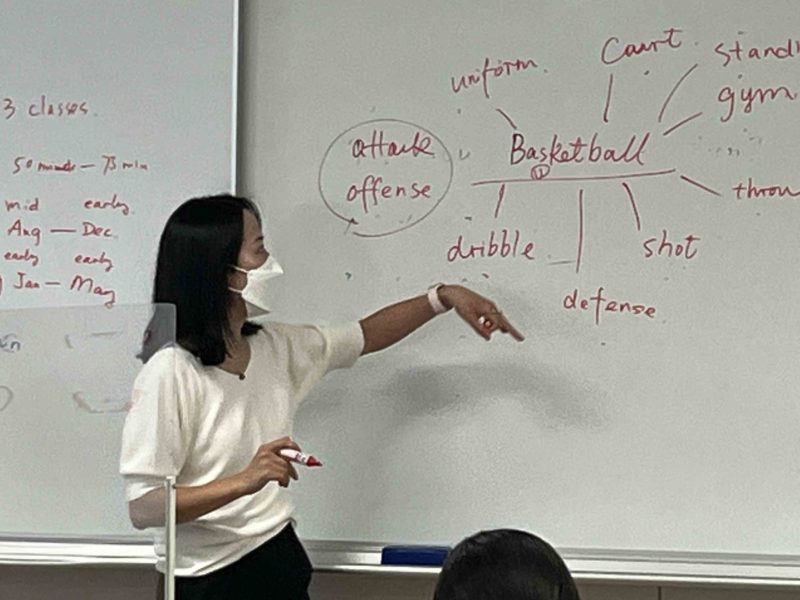 3 classes.
50 — 75 min
mid early
Aug — Dec
early early
Jan — May
uniform.
Court.
gym
attack
offense
Basketball
①
dribble
shot
defense